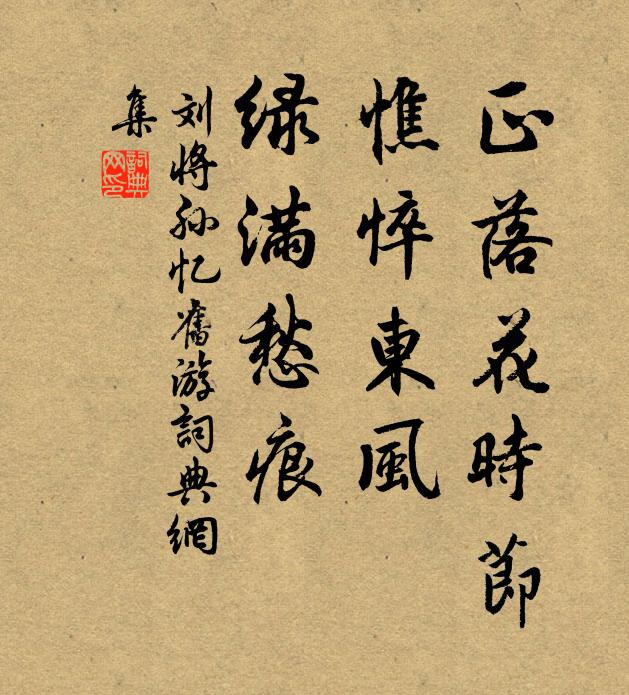 正落花時節
憔悴東風
緑滿愁痕
刘將孙忆舊游詞典網
集
詞典网印